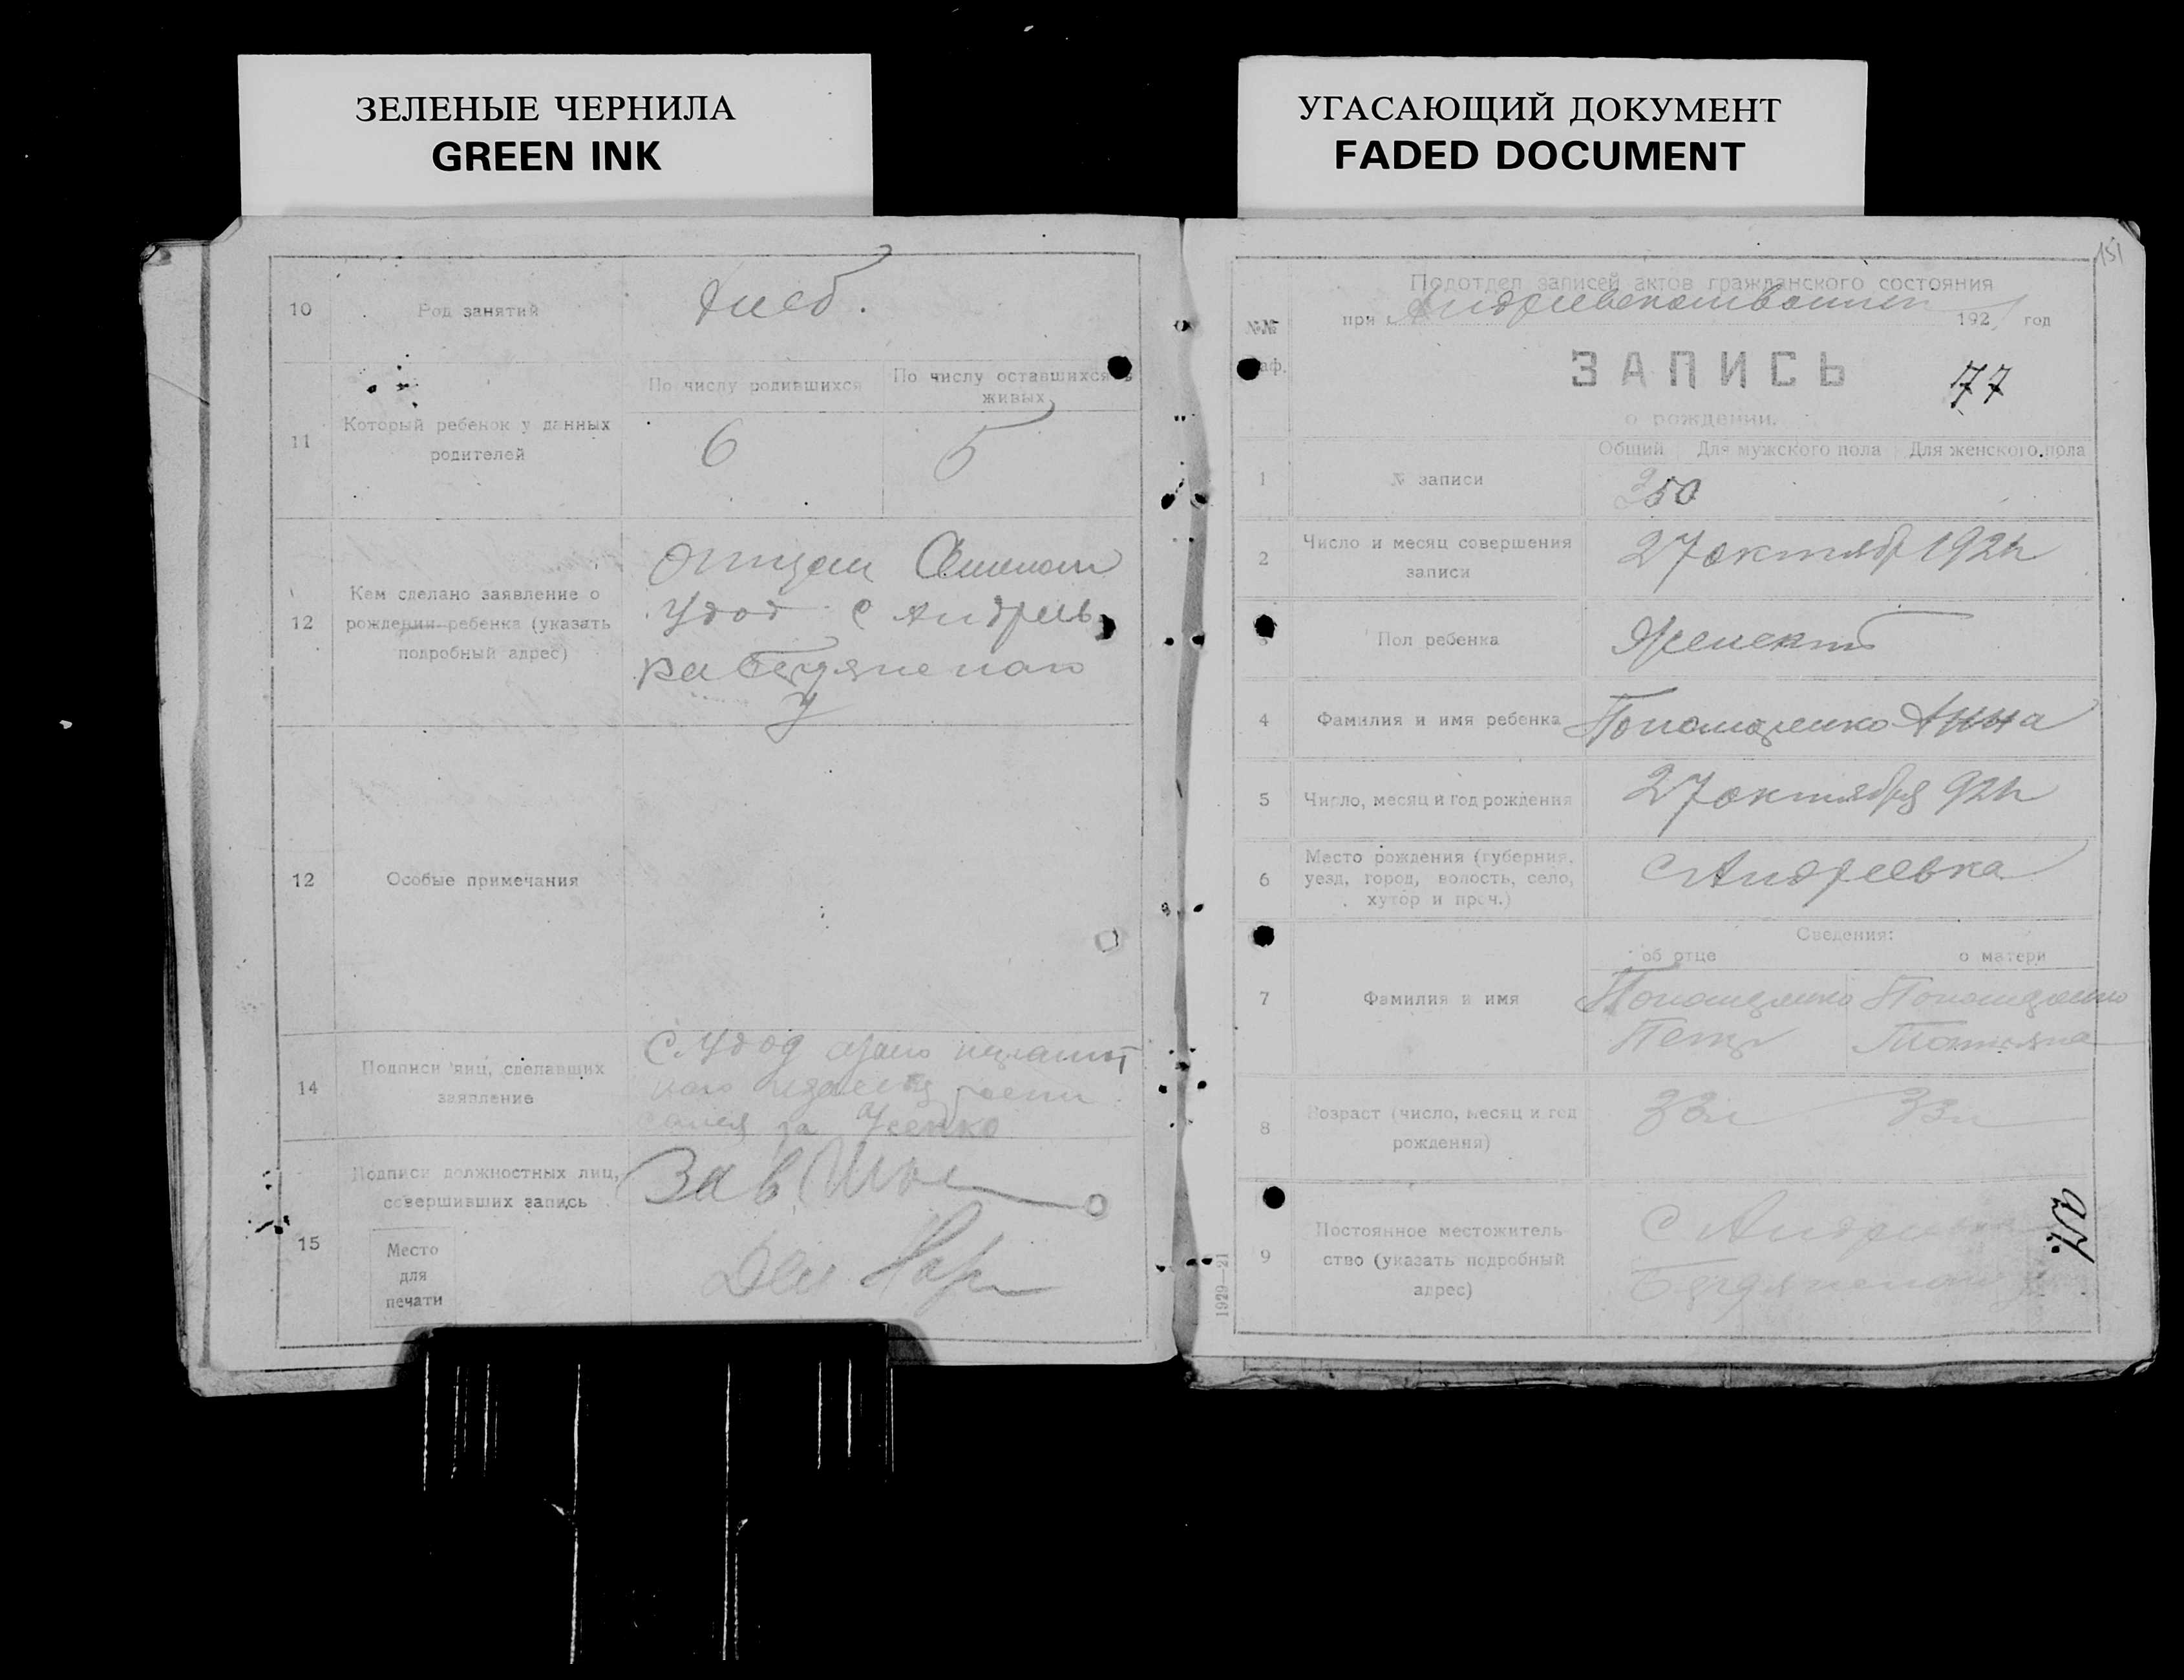 ЗЕЛЕНЫЕ ЧЕРНИЛА
GREEN INK
10 Род занятий хлеб.
11 Который ребенок у данных родителей
По числу родившихся
По числу оставшихся в живых
6
5
12 Кем сделано заявление о рождении ребенка (указать подробный адрес)
отцом
Удод с Андреев
ка Бердянского
у
12 Особые примечания
14 Подписи лиц, сделавших заявление
С Удод
15 Подписи должностных лиц, совершивших запись
Зав
Место
для
печати
УГАСАЮЩИЙ ДОКУМЕНТ
FADED DOCUMENT
151
Подотдел записей актов гражданского состояния
при 192 год
№№
аф.
ЗАПИСЬ
77
о рождении.
Общий Для мужского пола Для женского пола
1 № записи 350
2 Число и месяц совершения записи 27 октяб 192
Пол ребенка Женский
4 Фамилия и имя ребенка Пономаренко Анна
5 Число, месяц и год рождения 27 октября 92
6 Место рождения (губерния, уезд, город, волость, село, хутор и проч.) с Андреевка
Сведения:
об отце о матери
7 Фамилия и имя
Пономаренко Пономаренко
Петр Татьяна
8 Возраст (число, месяц и год рождения) 33л 33л
9 Постоянное местожительство (указать подробный адрес)
с Андреевка
Бердянского
1929—21